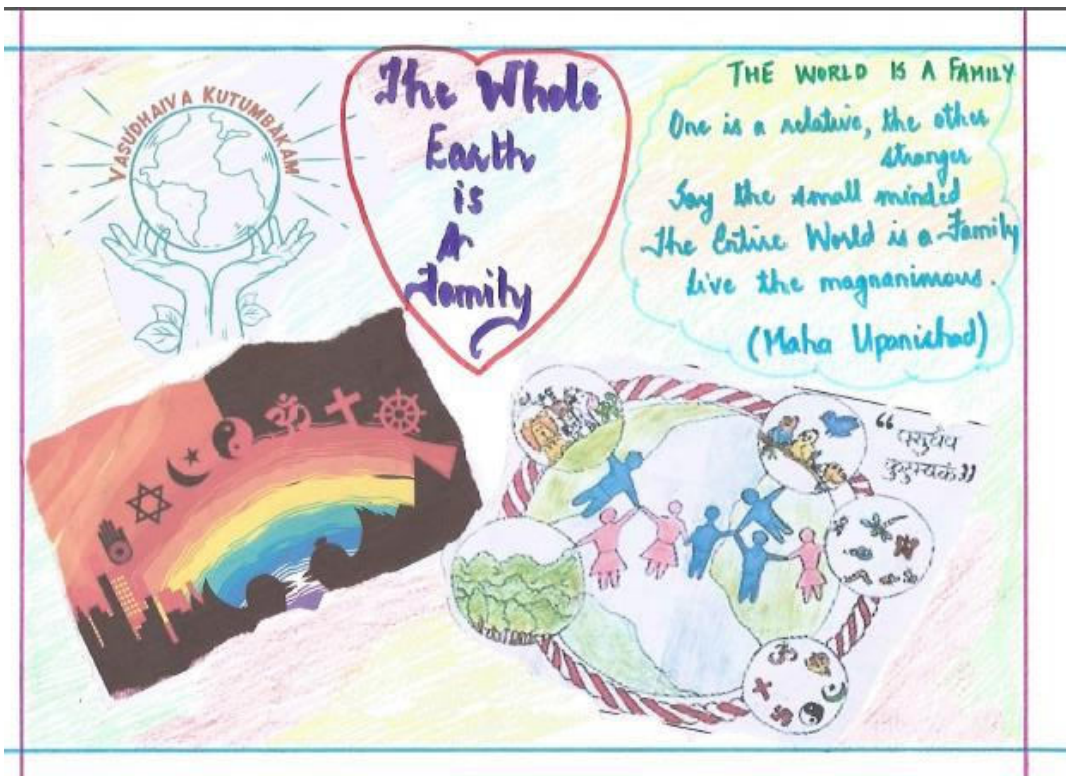 VASUDHAIVA KUTUMBAKAM
The Whole
Earth
is
A
Family
THE WORLD IS A FAMILY
One is a relative, the other
stranger
Say the small minded
The Entire World is a Family
Live the magnanimous.
(Maha Upanishad)
“वसुधैव
कुटुम्बकं”
ॐ
ॐ